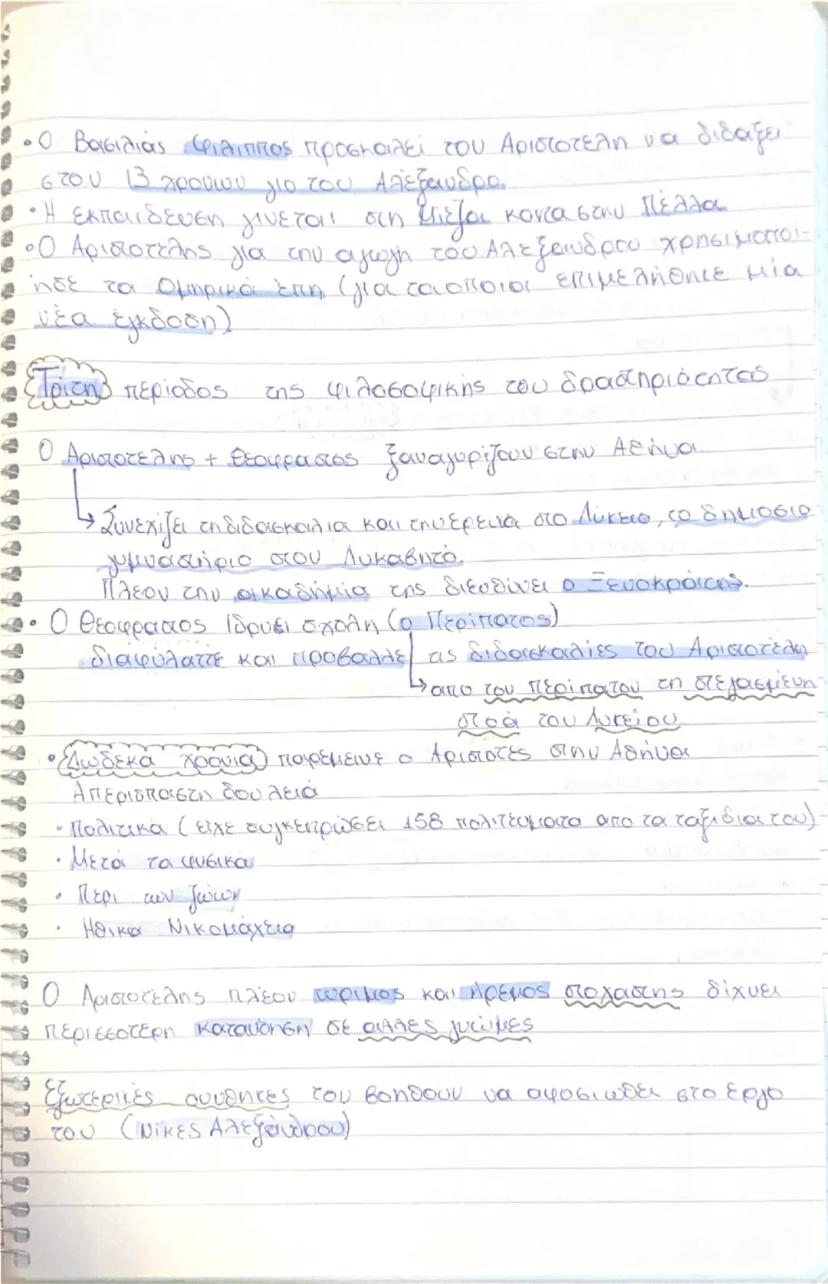 • Ο Βασιλιάς Φιλιππος προσκαλεί τον Αριστοτελη να διδαξει
στον 13 χρονων γιο του Αλέξανδρο.
• Η εκπαιδευση γινεται στη Μιεζα κοντα στην Πέλλα
• Ο Αριστοτελης για την αγωγη του Αλεξανδρου χρησιμοποι-
ησε τα Ομηρικά έπη (για τα οποιοι επιμελήθηκε μία
νέα έκδοση)
Τρίτη περίοδος της φιλοσοφικής του δραστηριότητας
Ο Αριστοτελης + Θεοφραστος ξαναγυρίζουν στην Αθήνα
↳ Συνεχίζει τη διδασκαλια και την ερευνα στο Λύκειο, το δημοσιο
γυμναστήριο στον Λυκαβητό.
Πλεον την ακαδήμία της διευθίνει ο Ξενοκράτης.
• Ο Θεοφραστος Ιδρυσε σχολη (ο Περίπατος)
διαφύλαττε και προβαλλε τις διδασκαλίες του Αριστοτελη
↳ απο τον περιπατον τη στεγασμένη
στοά του Λυκείου
• Δωδεκα χρονια παρέμεινε ο Αριστοτες στην Αθήνα
Απερισπαστη δουλειά
• Πολιτικά (ειχε συγκεντρώσει 158 πολιτέυματα απο τα ταξιδια του)
• Μετά τα φυσικά
• Περι των ζώων
• Ηθικα Νικομάχεια
Ο Αριστοτέλης πλέον ωριμος και Ηρεμος στοχαστης δίχνει
περισσοτερη κατανόηση σε αλλες γνώμες
Εξωτερικές συνθηκες τον βοηθουν να αφοσιωθει στο εργο
του (Νίκες Αλεξάνδρου)